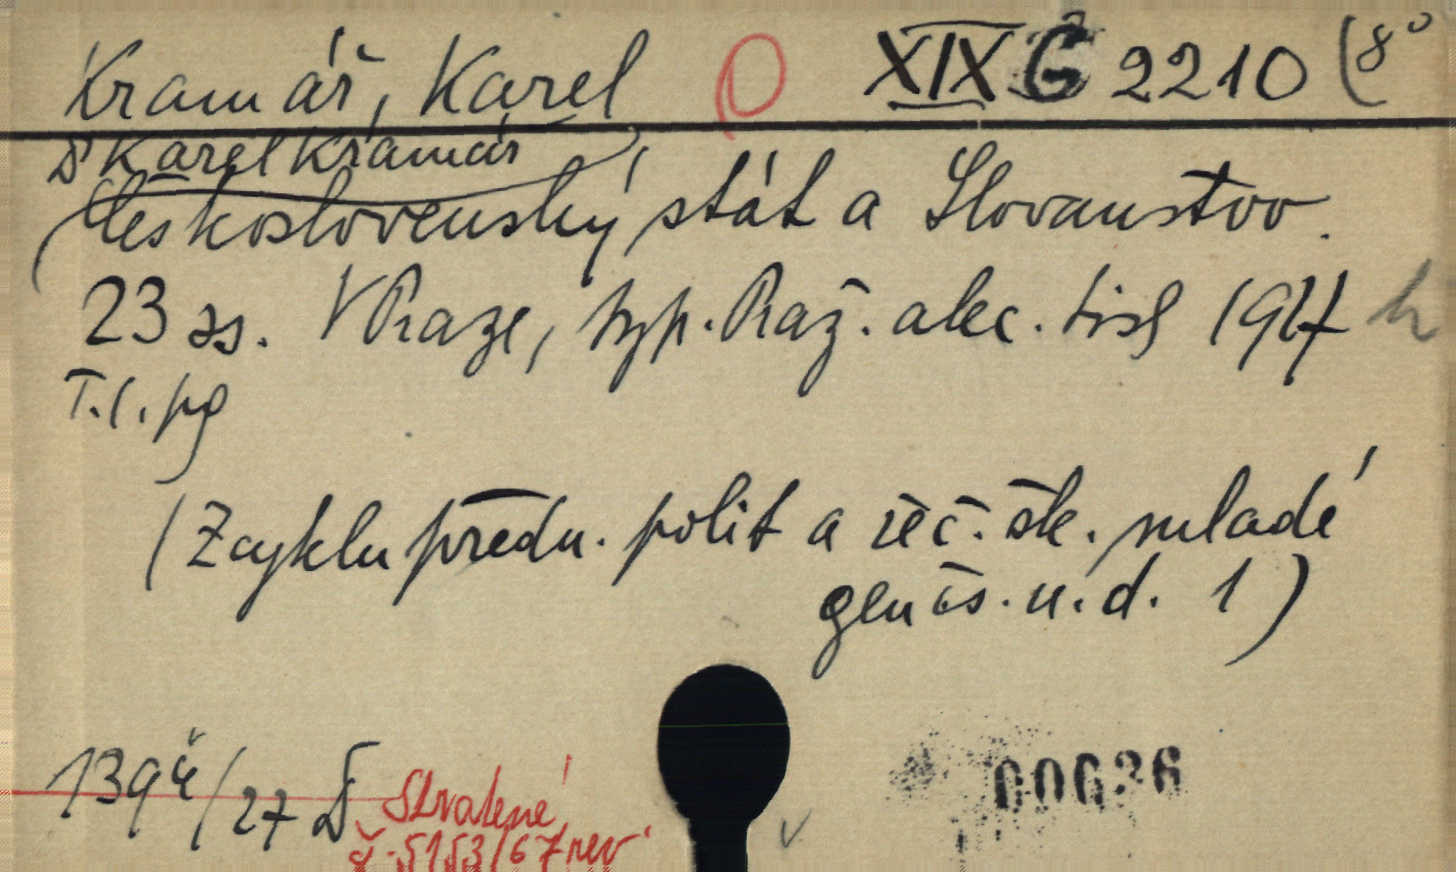 Kramář, Karel XIX G 2210 (8°
Dr Karel Kramář
Československý stát a Slovanstvo.
23 ss. V Praze, typ. Praž. akc. tisk 1927
T.l. pg
(Z cyklu předn. polit a řeč. šk. mladé
gen čs. n. d. 1)
139 /27 D
Skratené
č. 5153/67 rev
00636